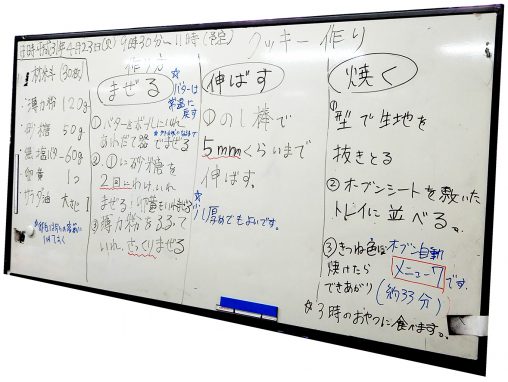 日時 平成31年4月23日(火) 9時30分～11時(予定) クッキー作り
材料(30個)
薄力粉 120g
砂糖 50g
無塩バター 60g
卵黄 1つ
サラダ油 大さじ1
作り方
まぜる
☆バターは
常温に
戻す
①バターをボールにいれ
あわだて器でまぜる
②①に砂糖を
2回にわけいれ
まぜる
③薄力粉をふるって
いれ、さっくりまぜる
伸ばす
①のし棒で
5mmくらいまで
伸ばす。
☆少し厚めでもよいです。
焼く
①型で生地を
抜きとる
②オーブンシートを敷いた
トレイに並べる。
③きつね色に
焼けたら
できあがり
オーブン自動
メニュー7です。
(約33分)
☆3時のおやつに食べます。